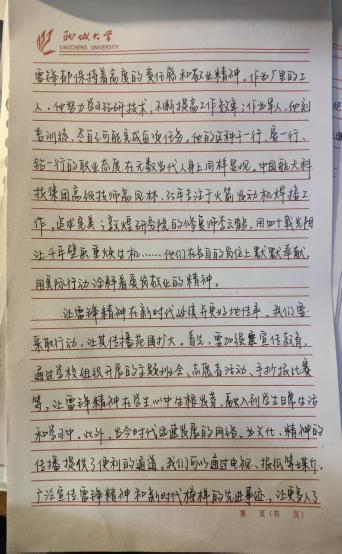 聊城大学
LIAOCHENG UNIVERSITY
雷锋都保持着高度的责任感和敬业精神。作为厂里的工
人，他努力学习钻研技术，不断提高工作效率；作为军人，他刻
苦训练，尽自己可能完成各项任务，他的这种干一行、爱一行、
钻一行的职业态度在无数当代人身上同样显现。中国航天科
技集团高级技师高凤林，35年专注于火箭发动机焊接工
作，追求完美；敦煌研究院的修复师李云鹤，用四十载光阴
让千年壁画重焕生机……他们在各自的岗位上默默奉献，
用实际行动诠释着爱岗敬业的精神。
让雷锋精神在新时代必须更好地传承，我们需
采取行动，让其传播范围扩大。首先，要加强宣传教育，
通过学校组织开展的主题班会、志愿者活动、手抄报比赛
等，让雷锋精神在学生心中生根发芽，融入到学生日常生活
和学习中。此外，当今时代迅速发展的网络，为文化、精神的
传播提供了便利的通道。我们可以通过电视、报纸等媒介，
广泛宣传雷锋精神和新时代榜样的先进事迹，让更多人了
第 页（共 页）